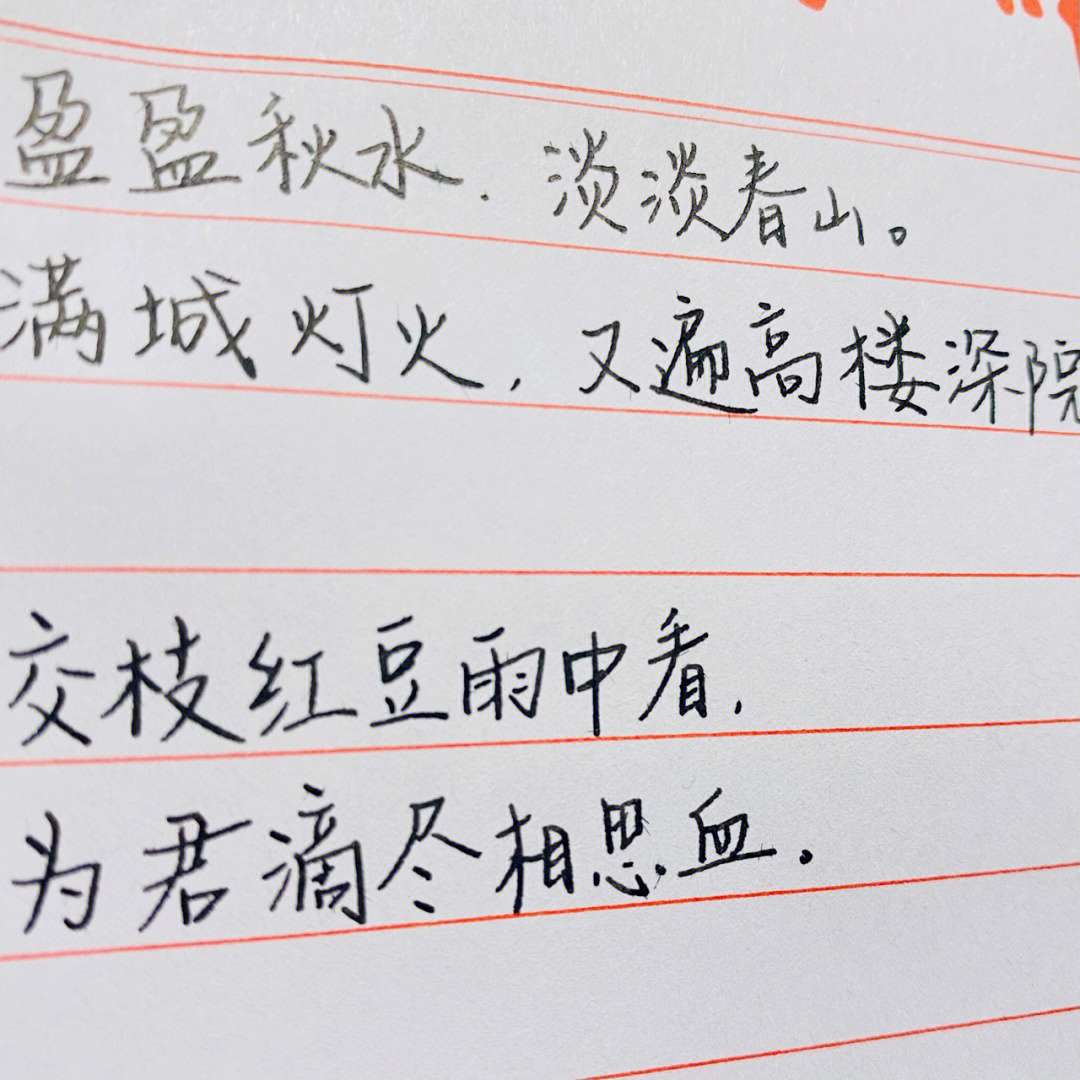 盈盈秋水．淡淡春山。
满城灯火，又遍高楼深院
交枝红豆雨中看，
为君滴尽相思血．